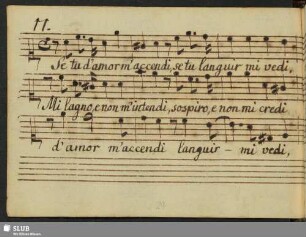 11.
Se tu d'amor m'accendi, se tu languir mi vedi,
Mi lagno, e non m'intendi, sospiro, e non mi credi
d'amor m'accendi languir - mi vedi,
SLUB